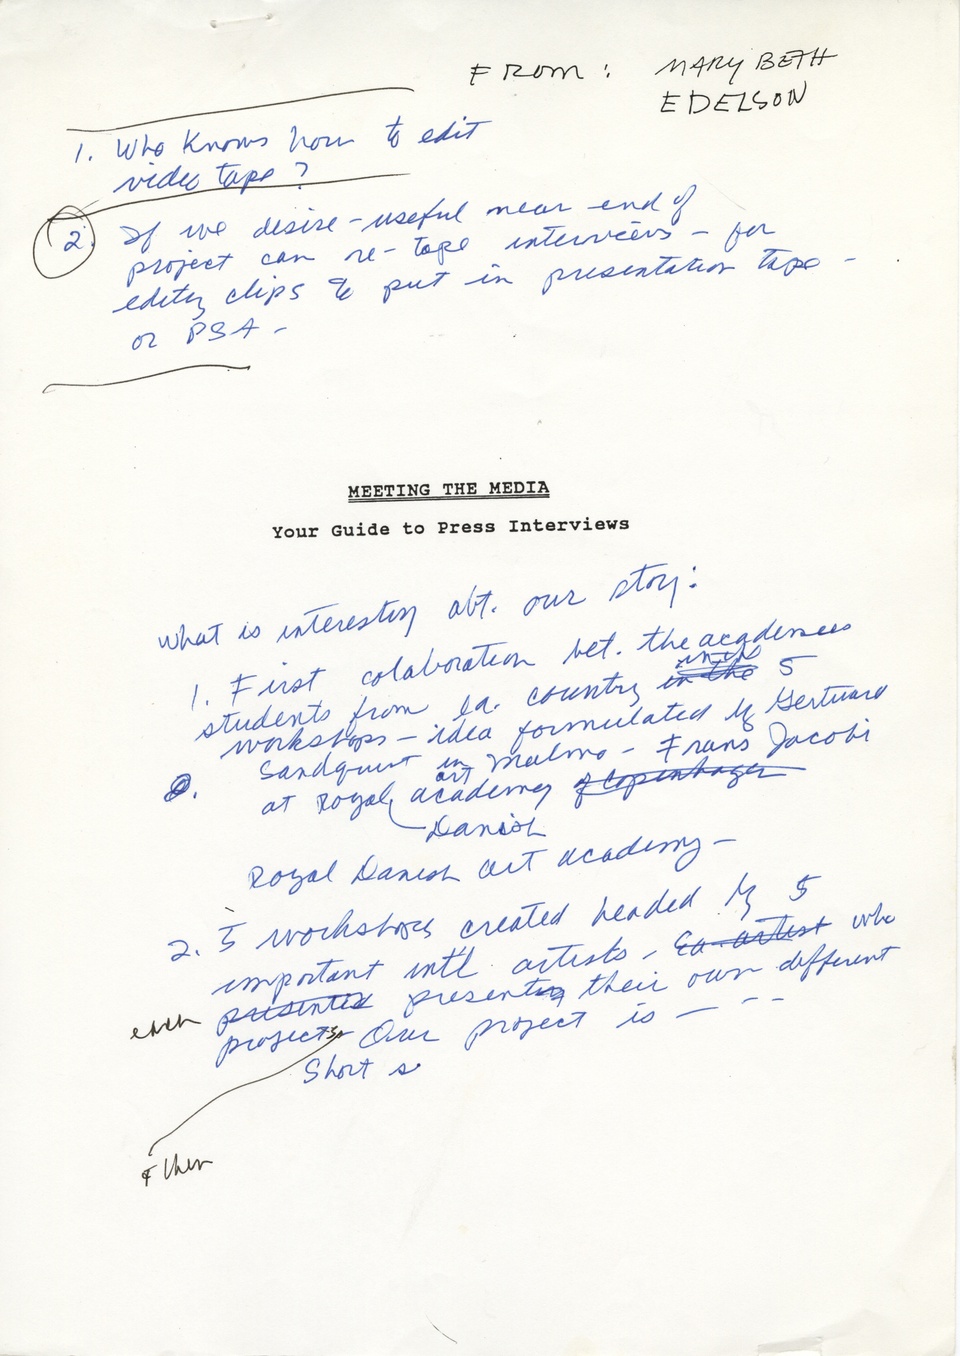 FROM: MARY BETH
EDELSON
1. Who knows how to edit
video tape?
2. If we desire - useful near end of
project can re-tape interviews - for
editing clips to put in presentation tape -
or PSA -
MEETING THE MEDIA
Your Guide to Press Interviews
What is interesting abt. our story:
1. First colaboration bet. the academies
in the
students from ea. country in the 5
workshops - idea formulated by Gertuard
Sandquist in Malmo - Frans Jacobi
art
at Royal academy of Copenhagen
Danish
Royal Danish art academy -
2. 5 workshops created headed by 5
important int'l. artists, Ea artist who
each presented presenting their own different
projects Our project is - - -
Short s
& then